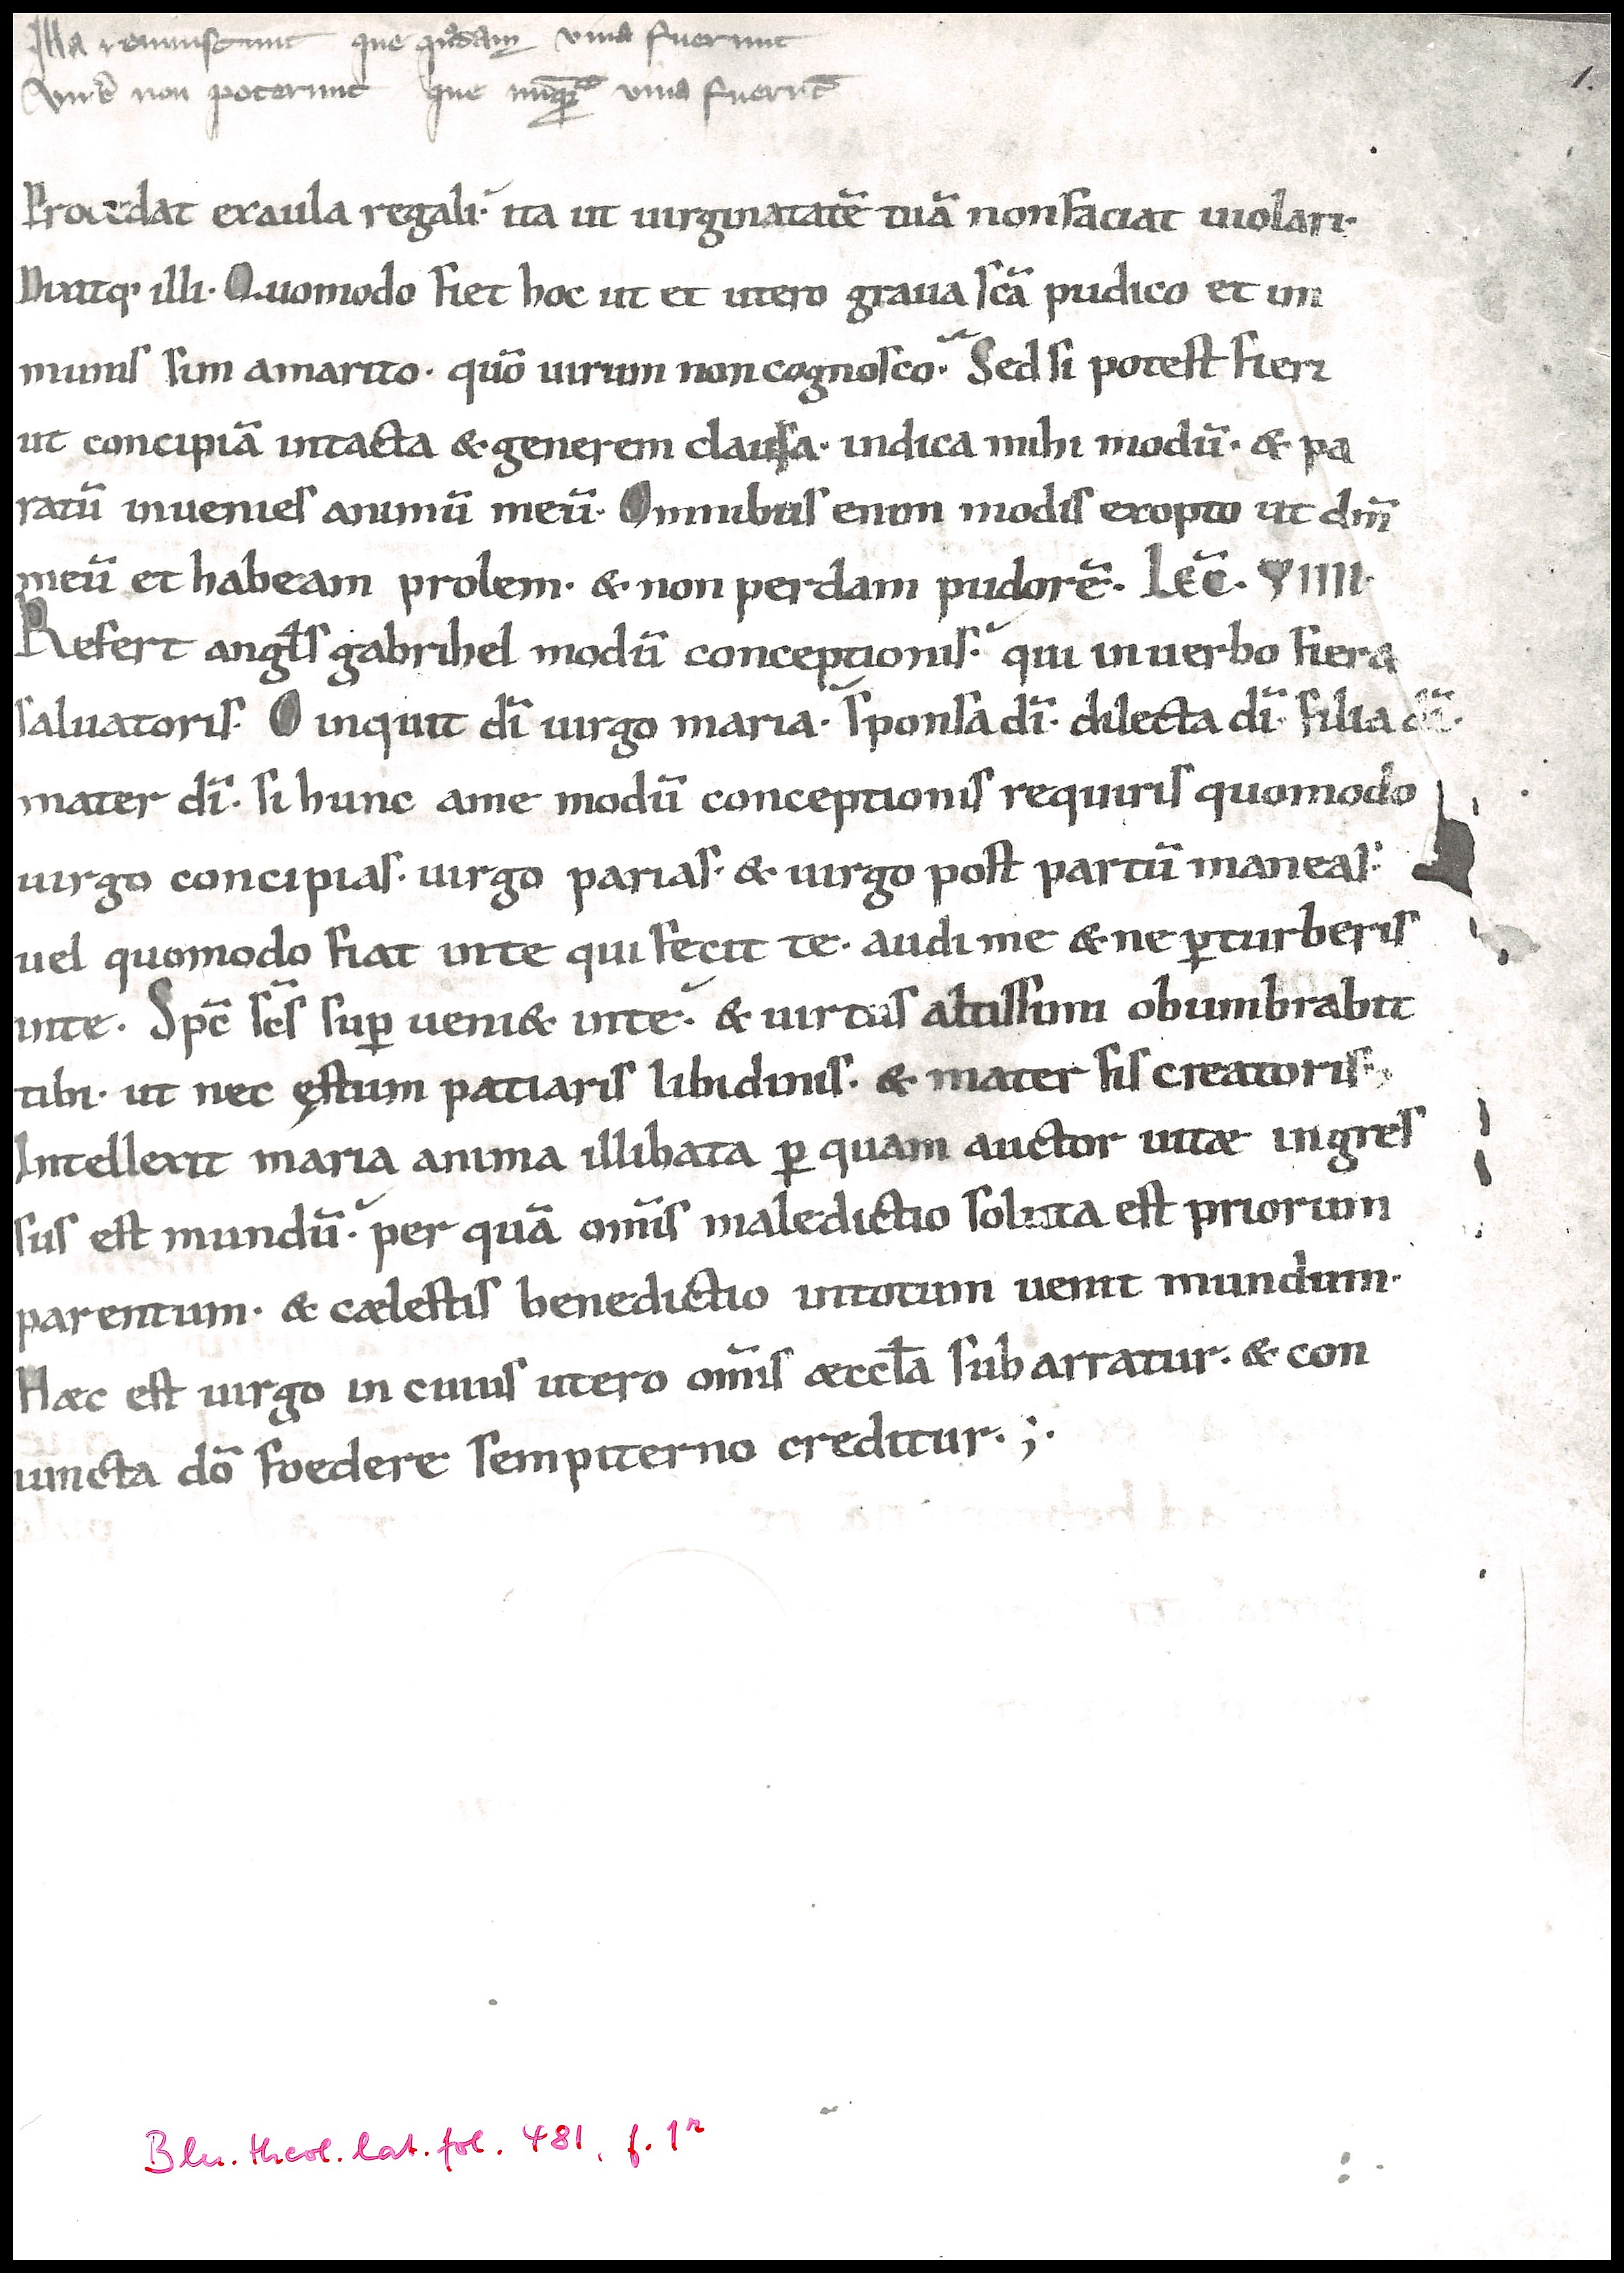 Illa reuiuiscunt que q̄dam viua fuerunt
non poterunt que nūq̄ viua fuerūt
1.
Procedat exaula regali· ita ut uirginatatē tuā nonfaciat uiolari·
Dixitq; illi· Quomodo fiet hoc ut et utero graua scā pudico et im
munis sim amarito· quō uirum noncognosco· Sed si potest fieri
ut concipiā intacta & generem clausa· indica mihi modū· & pa
ratū inuenies animū meū· Omnibus enim modis exopto ut dn̄m
meū et habeam prolem· & non perdam pudorē· Lec̄· VIIII·
Refert angl̄s gabrihel modū conceptionis· qui inuerbo fiera
saluatoris· O inquit dī uirgo maria· sponsa dī· dilecta dī· filia dī·
mater dī· si hunc ame modū conceptionis requiris quomodo
uirgo concipias· uirgo parias· & uirgo post partū maneas·
uel quomodo fiat inte qui fecit te· audi me & ne ꝑturberis
inte· Sp̄c sc̄s suꝑ ueni& inte· & uirtus altissimi obumbrabit
tibi· ut nec ęstum patiaris libidinis· & mater sis creatoris·
Intellexit maria anima illibata ꝑ quam auctor uitæ ingres
sus est mundū· per quā om̄is maledictio soluta est priorum
parentum· & cælestis benedictio intotum uenit mundum·
Hæc est uirgo in cuius utero om̄is æccl̄a subarratur· & con
iuncta dō foedere sempiterno creditur· ;·
Bln. theol. lat. fol. 481, f. 1r